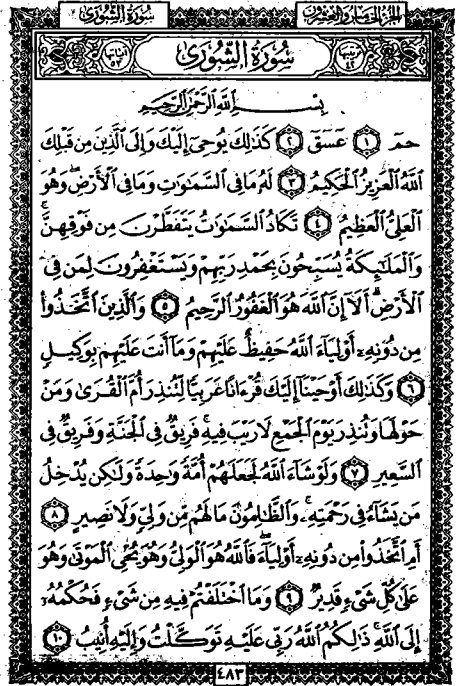 الجزء الخامس والعشرون
سُورَةُ الشُّورَىٰ
ترتيبها ٤٢
سُورَةُ الشُّورَىٰ
آياتها ٥٣
بِسْمِ اللَّهِ الرَّحْمَٰنِ الرَّحِيمِ
حمٓ ١ عٓسٓقٓ ٢ كَذَٰلِكَ يُوحِىٓ إِلَيْكَ وَإِلَى ٱلَّذِينَ مِن قَبْلِكَ
ٱللَّهُ ٱلْعَزِيزُ ٱلْحَكِيمُ ٣ لَهُۥ مَا فِى ٱلسَّمَٰوَٰتِ وَمَا فِى ٱلْأَرْضِ ۖ وَهُوَ
ٱلْعَلِىُّ ٱلْعَظِيمُ ٤ تَكَادُ ٱلسَّمَٰوَٰتُ يَتَفَطَّرْنَ مِن فَوْقِهِنَّ ۚ
وَٱلْمَلَٰٓئِكَةُ يُسَبِّحُونَ بِحَمْدِ رَبِّهِمْ وَيَسْتَغْفِرُونَ لِمَن فِى
ٱلْأَرْضِ ۗ أَلَآ إِنَّ ٱللَّهَ هُوَ ٱلْغَفُورُ ٱلرَّحِيمُ ٥ وَٱلَّذِينَ ٱتَّخَذُوا۟
مِن دُونِهِۦٓ أَوْلِيَآءَ ٱللَّهُ حَفِيظٌ عَلَيْهِمْ وَمَآ أَنتَ عَلَيْهِم بِوَكِيلٍ
٦ وَكَذَٰلِكَ أَوْحَيْنَآ إِلَيْكَ قُرْءَانًا عَرَبِيًّا لِّتُنذِرَ أُمَّ ٱلْقُرَىٰ وَمَنْ
حَوْلَهَا وَتُنذِرَ يَوْمَ ٱلْجَمْعِ لَا رَيْبَ فِيهِ ۚ فَرِيقٌ فِى ٱلْجَنَّةِ وَفَرِيقٌ فِى
ٱلسَّعِيرِ ٧ وَلَوْ شَآءَ ٱللَّهُ لَجَعَلَهُمْ أُمَّةً وَٰحِدَةً وَلَٰكِن يُدْخِلُ
مَن يَشَآءُ فِى رَحْمَتِهِۦ ۚ وَٱلظَّٰلِمُونَ مَا لَهُم مِّن وَلِىٍّ وَلَا نَصِيرٍ ٨
أَمِ ٱتَّخَذُوا۟ مِن دُونِهِۦٓ أَوْلِيَآءَ ۖ فَٱللَّهُ هُوَ ٱلْوَلِىُّ وَهُوَ يُحْىِ ٱلْمَوْتَىٰ وَهُوَ
عَلَىٰ كُلِّ شَىْءٍ قَدِيرٌ ٩ وَمَا ٱخْتَلَفْتُمْ فِيهِ مِن شَىْءٍ فَحُكْمُهُۥٓ
إِلَى ٱللَّهِ ۚ ذَٰلِكُمُ ٱللَّهُ رَبِّى عَلَيْهِ تَوَكَّلْتُ وَإِلَيْهِ أُنِيبُ ١٠
٤٨٣